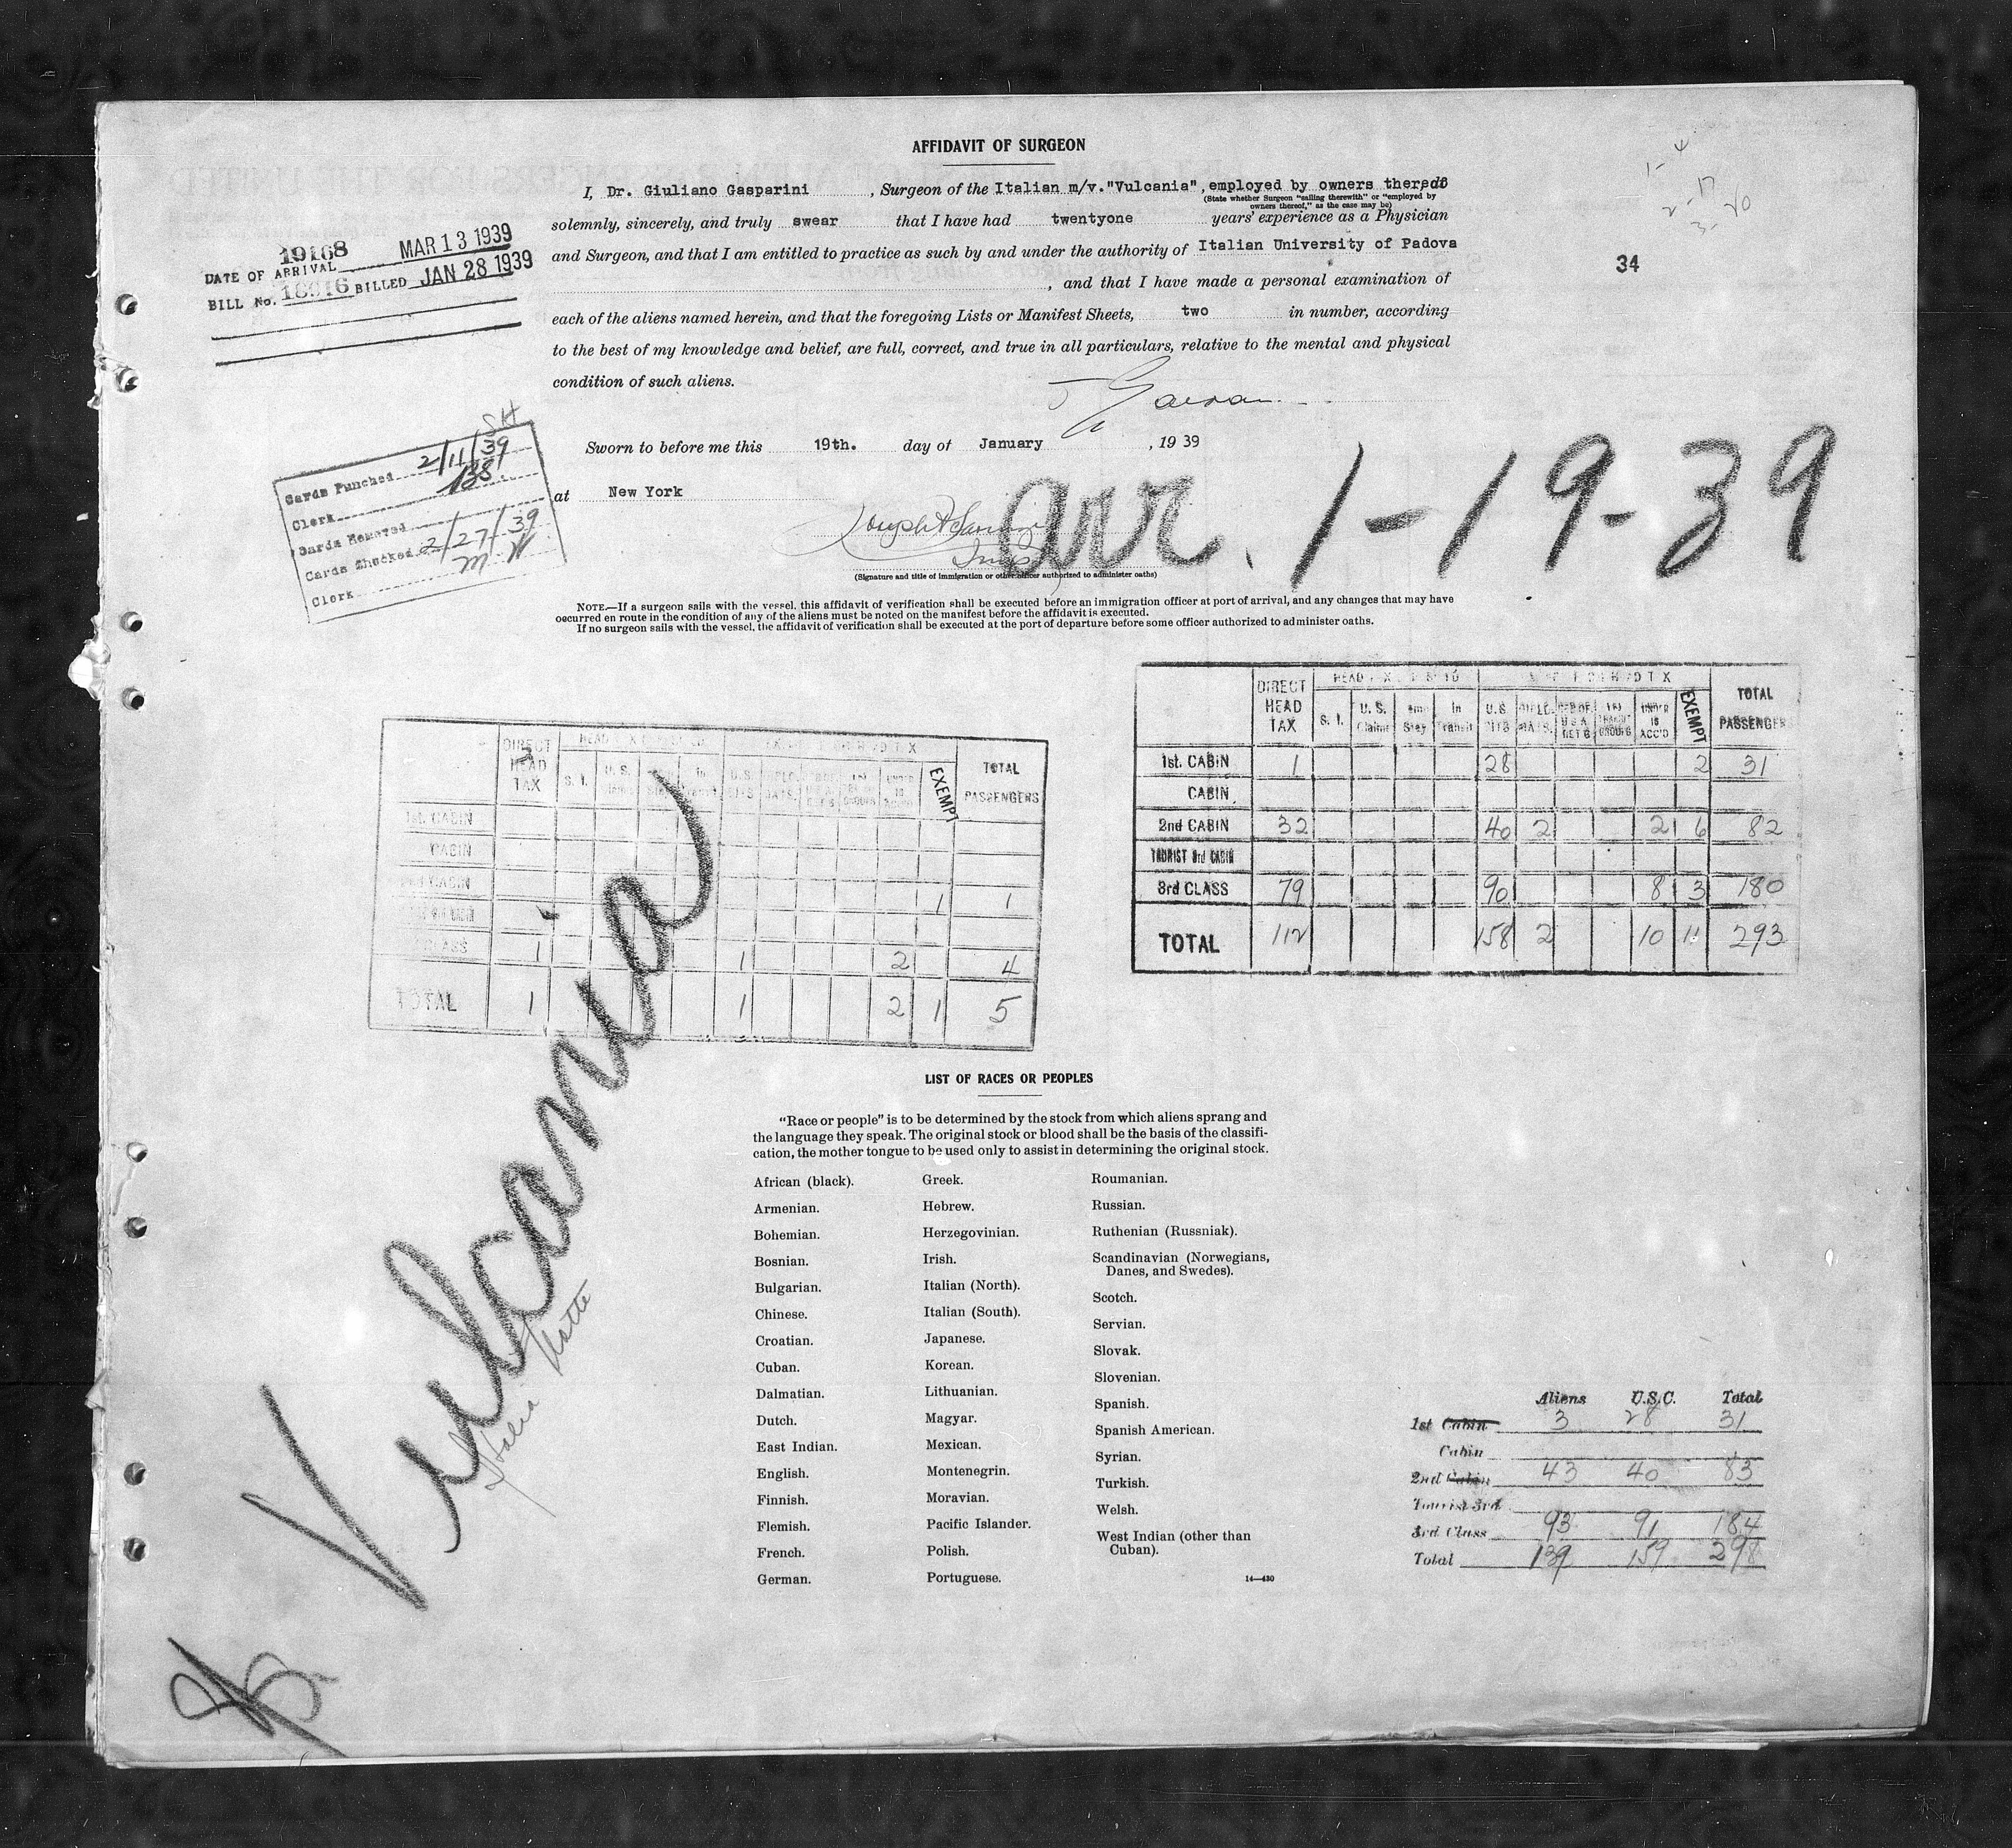 AFFIDAVIT OF SURGEON
I, Dr. Giuliano Gasparini , Surgeon of the Italian m/v. "Vulcania", employed by owners thereof do
(State whether Surgeon "sailing therewith" or "employed by
owners thereof," as the case may be)
solemnly, sincerely, and truly swear that I have had twentyone years' experience as a Physician
and Surgeon, and that I am entitled to practice as such by and under the authority of Italian University of Padova
, and that I have made a personal examination of
each of the aliens named herein, and that the foregoing Lists or Manifest Sheets, two in number, according
to the best of my knowledge and belief, are full, correct, and true in all particulars, relative to the mental and physical
condition of such aliens.
Sworn to before me this 19th. day of January , 19 39
at New York
(Signature and title of immigration or other officer authorized to administer oaths)
NOTE.—If a surgeon sails with the vessel, this affidavit of verification shall be executed before an immigration officer at port of arrival, and any changes that may have
occurred en route in the condition of any of the aliens must be noted on the manifest before the affidavit is executed.
If no surgeon sails with the vessel, the affidavit of verification shall be executed at the port of departure before some officer authorized to administer oaths.
19168 MAR 13 1939
DATE OF ARRIVAL
BILL No. BILLED JAN 28 1939
34
SH
Cards Punched 2/11/39
Clerk 138
Cards Removed
Cards Checked 2/27/39
Clerk M W
arr. 1-19-39
DIRECT HEAD TAX S. I. U. S. In Transit EXEMPT TOTAL PASSENGERS
1st. CABIN
CABIN
CABIN 1 1
CLASS 1 1 2 4
TOTAL 1 1 2 1 5
DIRECT HEAD TAX S. I. U. S. Claims Stay In Transit U.S. CITS UNDER 16 ACC'D EXEMPT TOTAL PASSENGERS
1st. CABIN 1 28 2 31
CABIN
2nd CABIN 32 40 2 2 6 82
TOURIST 3rd CABIN
3rd CLASS 79 90 8 3 180
TOTAL 112 158 2 10 11 293
Vulcania
Italia
LIST OF RACES OR PEOPLES
"Race or people" is to be determined by the stock from which aliens sprang and
the language they speak. The original stock or blood shall be the basis of the classifi-
cation, the mother tongue to be used only to assist in determining the original stock.
African (black).
Armenian.
Bohemian.
Bosnian.
Bulgarian.
Chinese.
Croatian.
Cuban.
Dalmatian.
Dutch.
East Indian.
English.
Finnish.
Flemish.
French.
German.
Greek.
Hebrew.
Herzegovinian.
Irish.
Italian (North).
Italian (South).
Japanese.
Korean.
Lithuanian.
Magyar.
Mexican.
Montenegrin.
Moravian.
Pacific Islander.
Polish.
Portuguese.
Roumanian.
Russian.
Ruthenian (Russniak).
Scandinavian (Norwegians,
Danes, and Swedes).
Scotch.
Servian.
Slovak.
Slovenian.
Spanish.
Spanish American.
Syrian.
Turkish.
Welsh.
West Indian (other than
Cuban).
14—430
Aliens U.S.C. Total
1st Cabin 3 28 31
Cabin
2nd Cabin 43 40 83
Tourist 3rd
3rd Class 93 91 184
Total 139 159 298